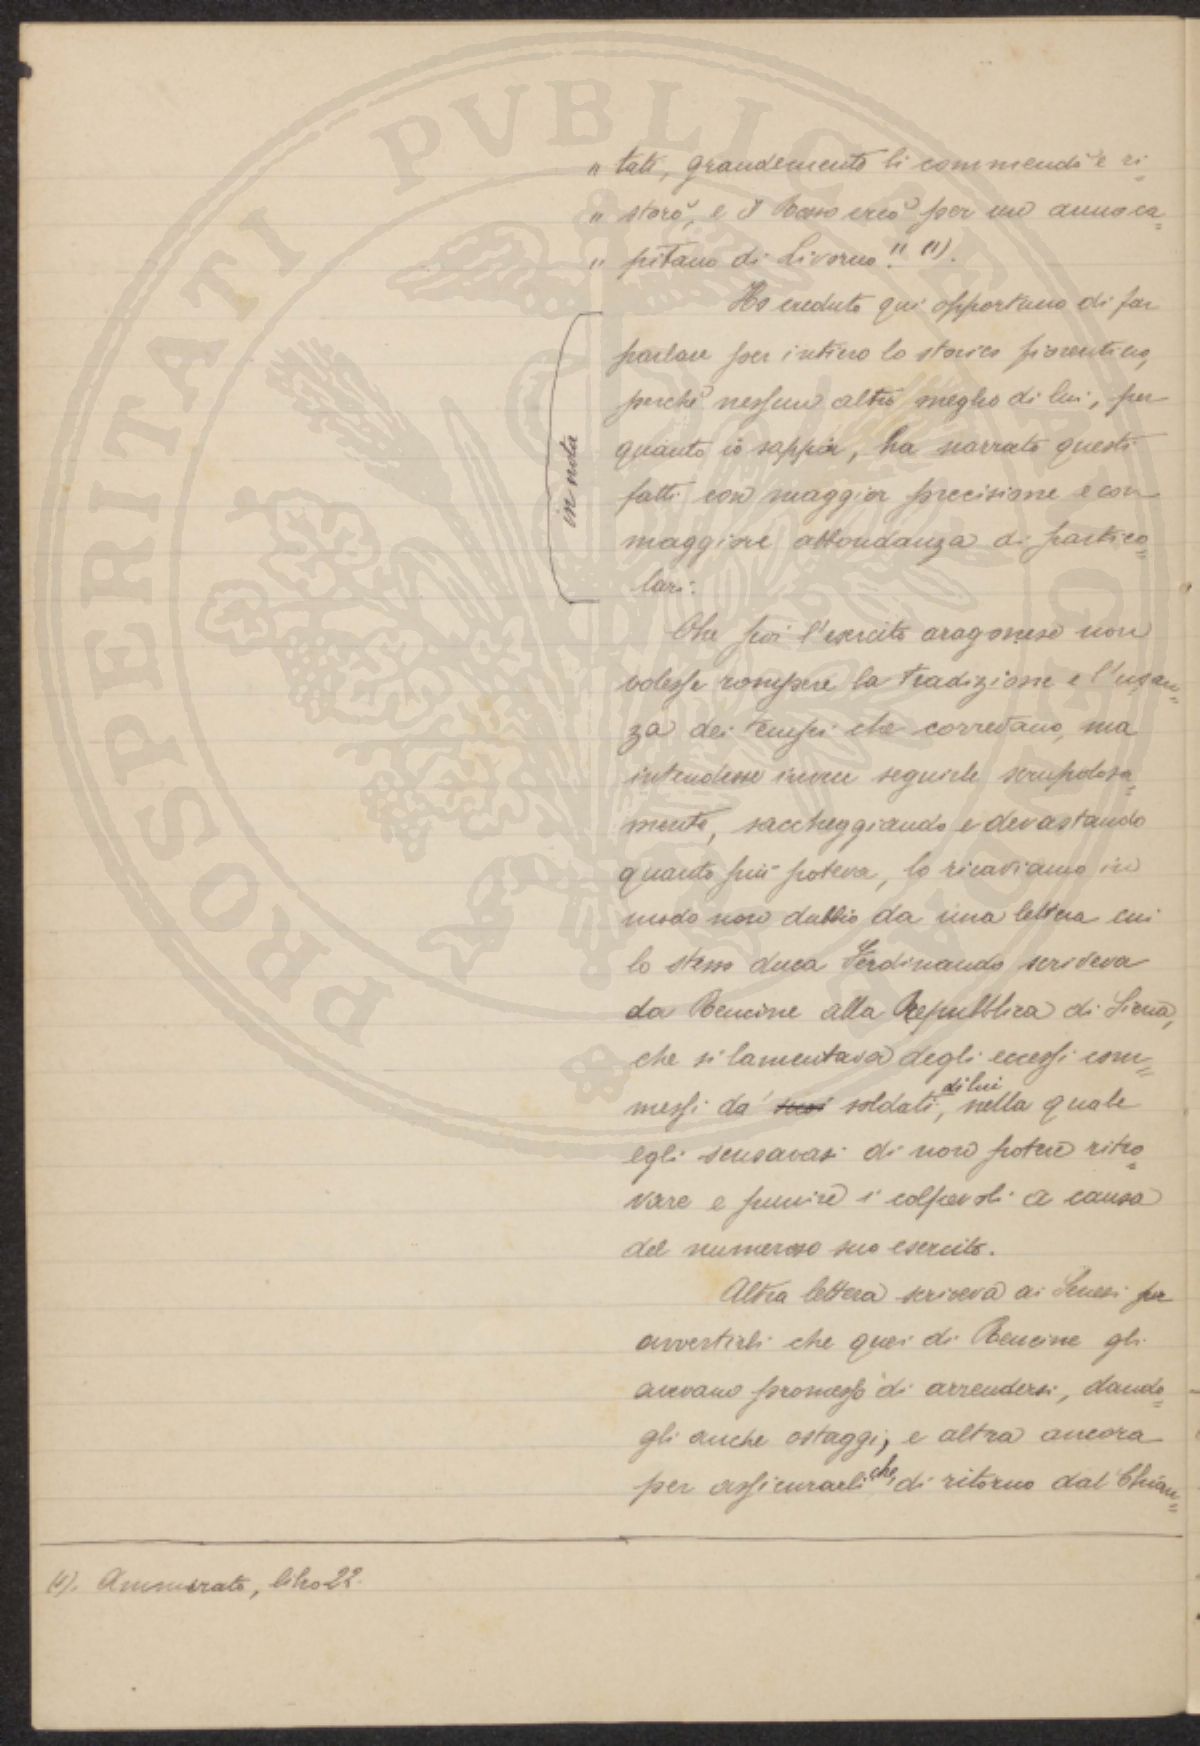 " tati, grandemente li commendò e ri-
" storò, e il Basso creò per un anno ca=
" pitano di Livorno." (1).
Ho creduto qui opportuno di far
parlare per intiero lo storico fiorentino,
perchè nessun altro meglio di lui, per
quanto io sappia, ha narrato questi
fatti con maggior precisione e con
maggiore abbondanza di partico=
lari.
in nota
Che poi l'esercito aragonese non
volesse rompere la tradizione e l'usan=
za dei tempi che correvano, ma
intendesse invece seguirle scrupolosa=
mente, saccheggiando e devastando
quanto più poteva, lo ricaviamo in
modo non dubbio da una lettera cui
lo stesso duca Ferdinando scriveva
da Rencine alla Repubblica di Siena,
che si lamentava degli eccessi com=
messi da' suoi soldati, di lui nella quale
egli scusavasi di non potere ritro=
vare e punire i colpevoli a causa
del numeroso suo esercito.
Altra lettera scriveva ai Senesi per
avvertirli che quei di Rencine gli
avevano promesso di arrendersi, dando=
gli anche ostaggi, e altra ancora
per assicurarli che, di ritorno dal Chian=
(1). Ammirato, libro 22.
PROSPERITATI PVBLICAE